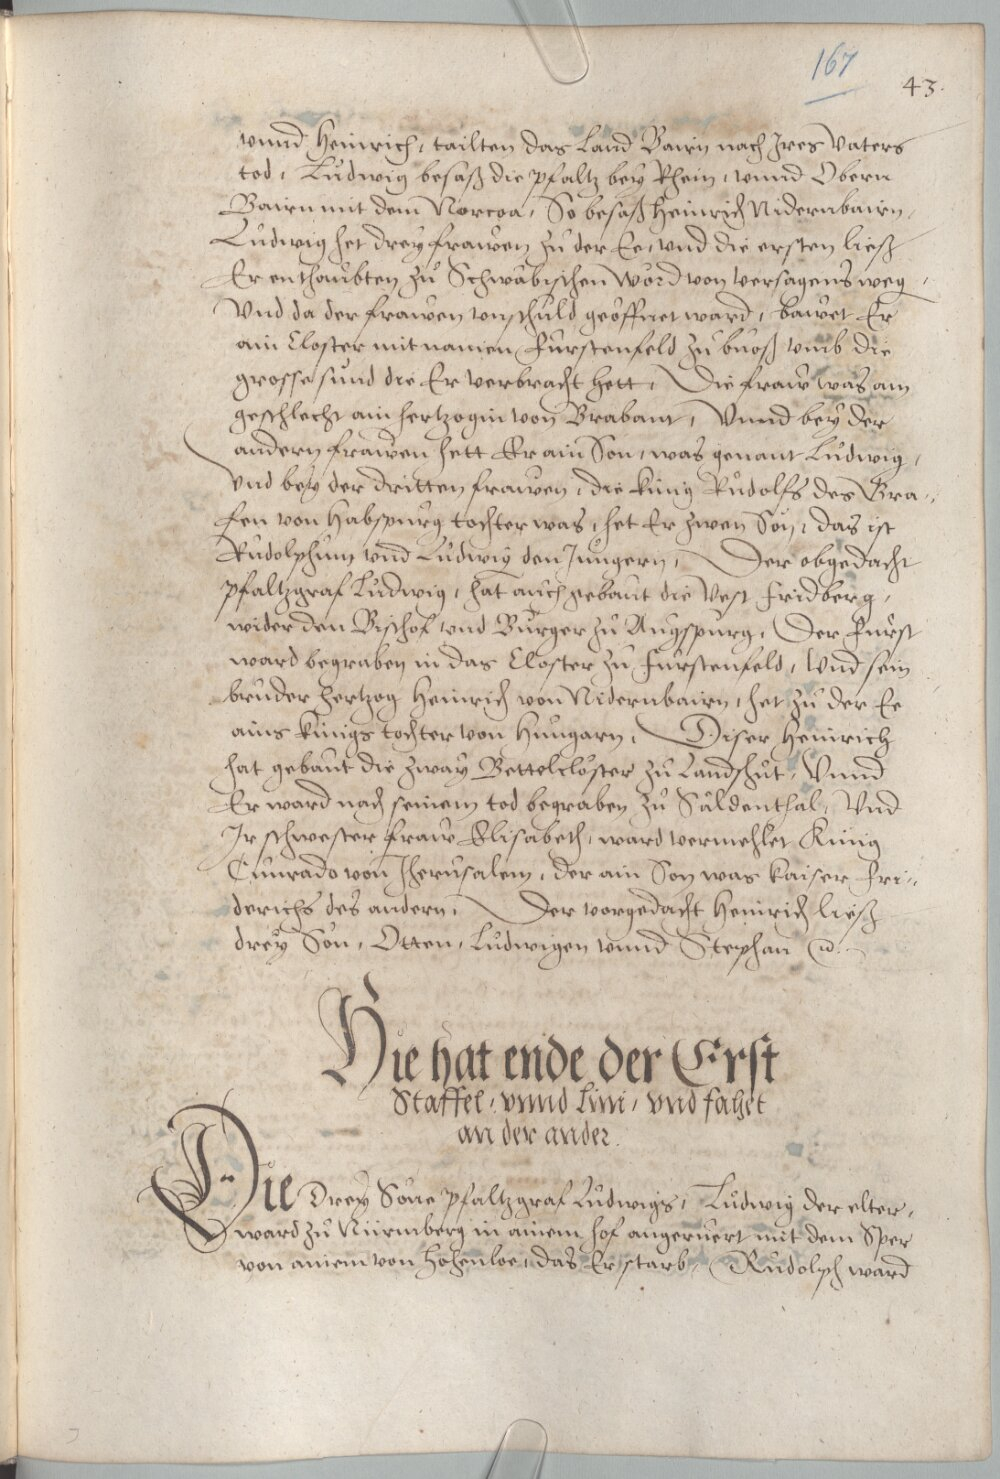 167
43.
vnnd Heinrich, tailten das Land Bairn nach Ires Vaters
tod, Ludwig besaß die pfaltz bey Rhein, vnnd Obern
Bairn mit dem Norcoa, So besaß Heinrich Nidernbairn,
Ludwig het drey frawen zu der Ee, vnd die ersten ließ
Er enthaubten zu Schwäbischen Wörd von versagens weg,
Vnd da der frawen vnschuld geöffnet ward, bawet Er
ain Closter mit namen Fürstenfeld zu buoß vmb die
grosse sünd die Er verbracht hett, Die fraw was am
geschlecht ain hertzogin von Brabant, Vnnd bey der
andern frawen hett Er ain Son, was genant Ludwig,
vnd bey der dritten frawen, die künig Rudolfs des Gra-
fen von Habspurg tochter was, het Er zwen Sön, das ist
Rudolphum vnd Ludwig den Jungern, Der obgedacht
pfaltzgraf Ludwig, hat auch gebaut die Vest Fridberg,
wider den Bischof vnd Burger zu Augspurg, Der Fürst
ward begraben in das Closter zu Fürstenfeld, Vnd sein
bruder hertzog Heinrich von Nidernbairn, het zu der Ee
ains künigs tochter von Hungarn, Diser Heinrich
hat gebaut die zway Bettelclöster zu Landshut, Vnnd
Er ward nach seinem tod begraben zu Säldenthal, Vnd
Ir schwester fraw Elisabeth, ward vermehlet Künig
Cunrado von Jherusalem, der ain Son was kaiser Fri-
derichs des andern, Der vorgedacht Heinrich ließ
drey Sön, Otten, Ludwigen vnnd Stephan
Hie hat ende der Erst
Staffel, vnnd Lini, vnd fahet
an der ander.
Die Drey Söne pfaltzgraf Ludwigs, Ludwig der elter,
ward zu Nürmberg in ainem hof angeruert mit dem Sper
von ainem von Hohenloe, das Er starb, Rudolph ward